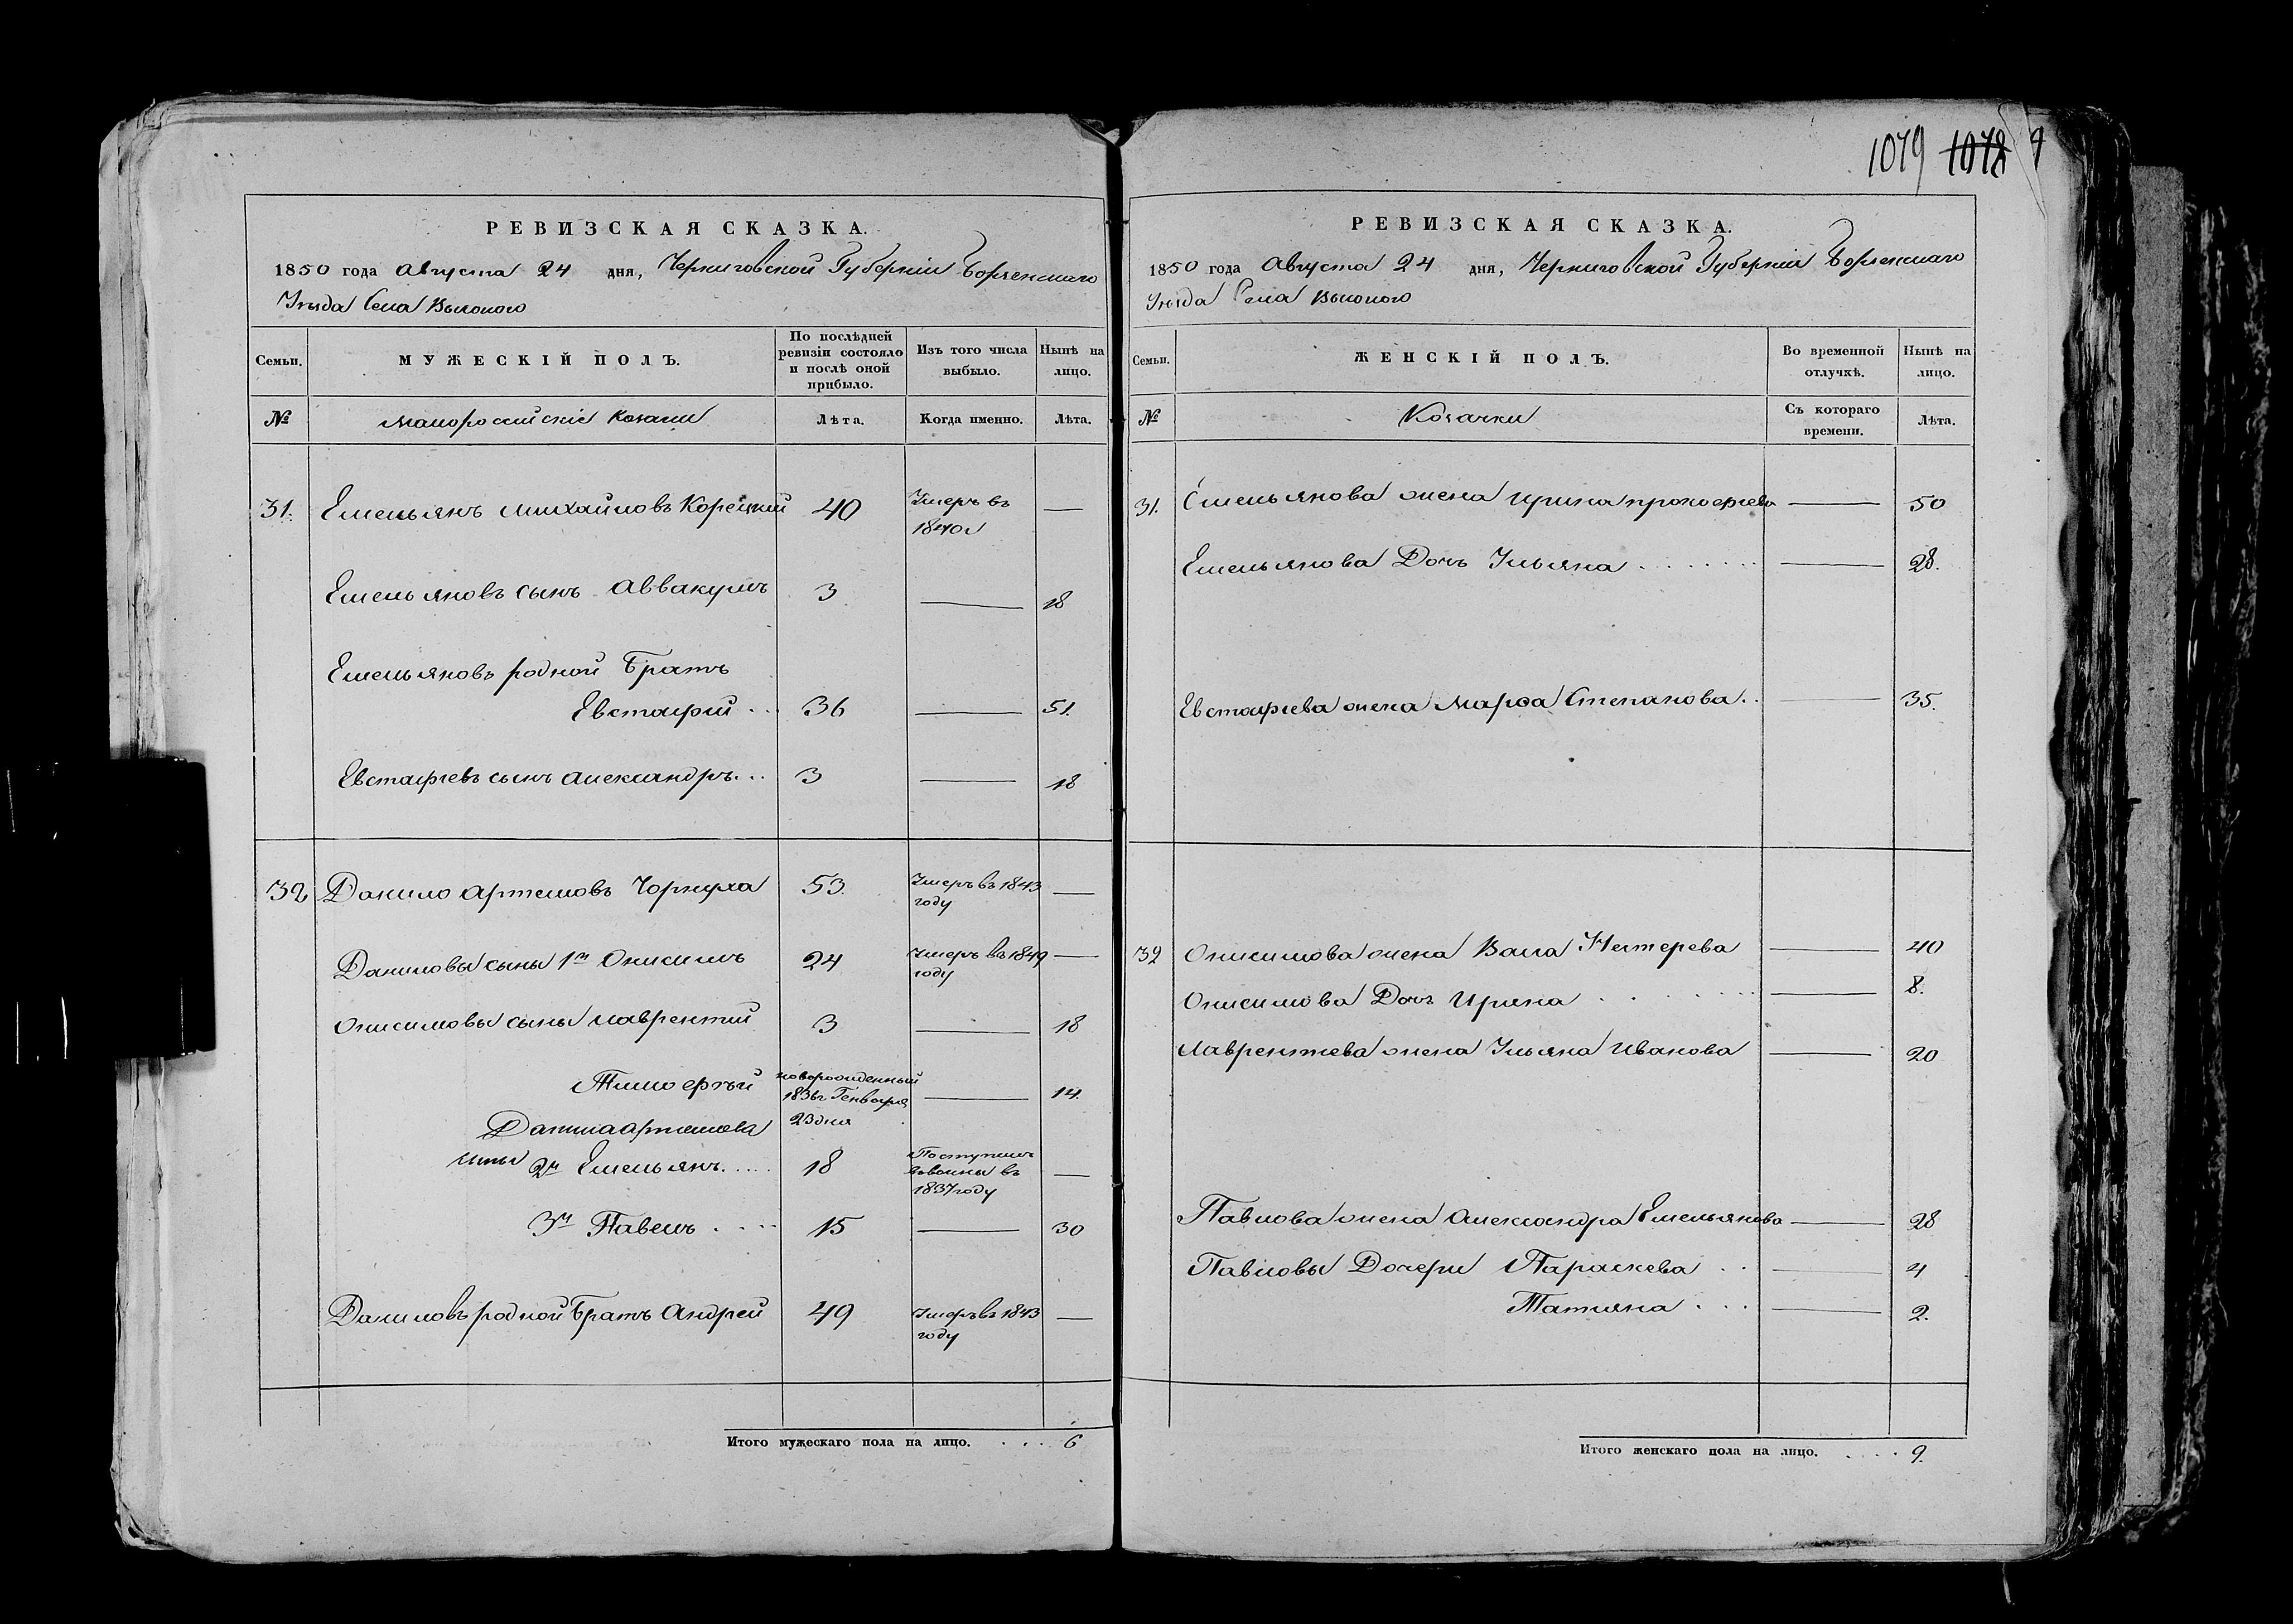 1079 1078 9
РЕВИЗСКАЯ СКАЗКА.
1850 года Августа 24 дня, Черниговской Губерніи Борзенскаго
Уѣзда Села Высокого
Семьи.
МУЖЕСКІЙ ПОЛЪ.
По послѣдней ревизіи состояло и послѣ оной прибыло.
Изъ того числа выбыло.
Нынѣ на лицо.
№
Малороссійскіе Козаки
Лѣта.
Когда именно.
Лѣта.
31. Емельянъ Михайловъ Корецкий 40 Умеръ въ —
1840
Емельяновъ сынъ Аввакумъ 3 — 18
Емельяновъ родной Братъ
Евстафий ... 36 — 51.
Евстафіевъ сынъ Александръ... 3 — 18
32 Данило Артемовъ Чорнуха 53. Умеръ въ 1843 —
году
Даниловы сыны 1й Онисимъ 24 Умеръ въ 1849 —
году
Онисимовы сыны Лаврентий 3 — 18
Тимофѣй новорожденный — 14.
1836г Генваря
Данила Артемова 23 дня
сыны 2й Емельянъ..... 18 Поступилъ —
в воины въ
1837 году
3й Павелъ .... 15 — 30
Даниловъ родной Братъ Андрей 49 Умеръ въ 1843 —
году
Итого мужескаго пола на лицо. .... 6
РЕВИЗСКАЯ СКАЗКА.
1850 года Августа 24 дня, Черниговской Губерніи Борзенскаго
Уѣзда Села Высокого
Семьи.
ЖЕНСКІЙ ПОЛЪ.
Во временной отлучкѣ.
Нынѣ на лицо.
№
Козачки
Съ котораго времени.
Лѣта.
31. Емельянова жена Ирина Прокофиева — 50
Емельянова Дочь Ульяна ........ — 28.
Евстафиева жена Марфа Степанова.. — 35.
32 Онисимова жена Васса Нестерева — 40
Онисимова Дочь Ирина ...... — 8.
Лаврентиева жена Ульяна Иванова — 20
Павлова жена Александра Емельянова — 28
Павловы Дочери Параскева .. — 4
Татияна ... — 2.
Итого женскаго пола на лицо. .... 9.